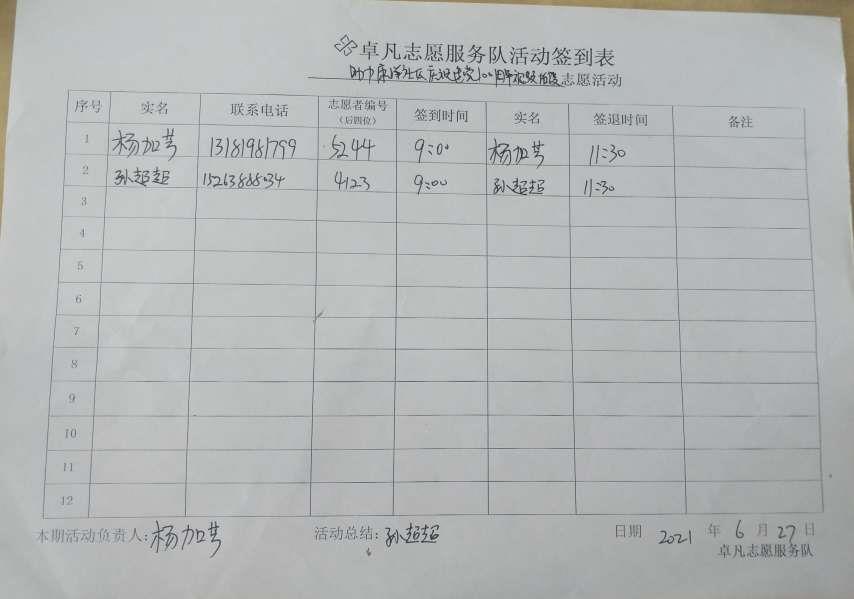 卓凡志愿服务队活动签到表
社区庆祝建党100周年 志愿活动
序号 实名 联系电话 志愿者编号（后四位） 签到时间 实名 签退时间 备注
1 杨加芹 13181981799 5244 9:00 杨加芹 11:30
2 孙超超 15263888034 4123 9:00 孙超超 11:30
3
4
5
6
7
8
9
10
11
12
本期活动负责人:杨加芹 活动总结:孙超超 日期 2021 年 6 月 27 日
卓凡志愿服务队